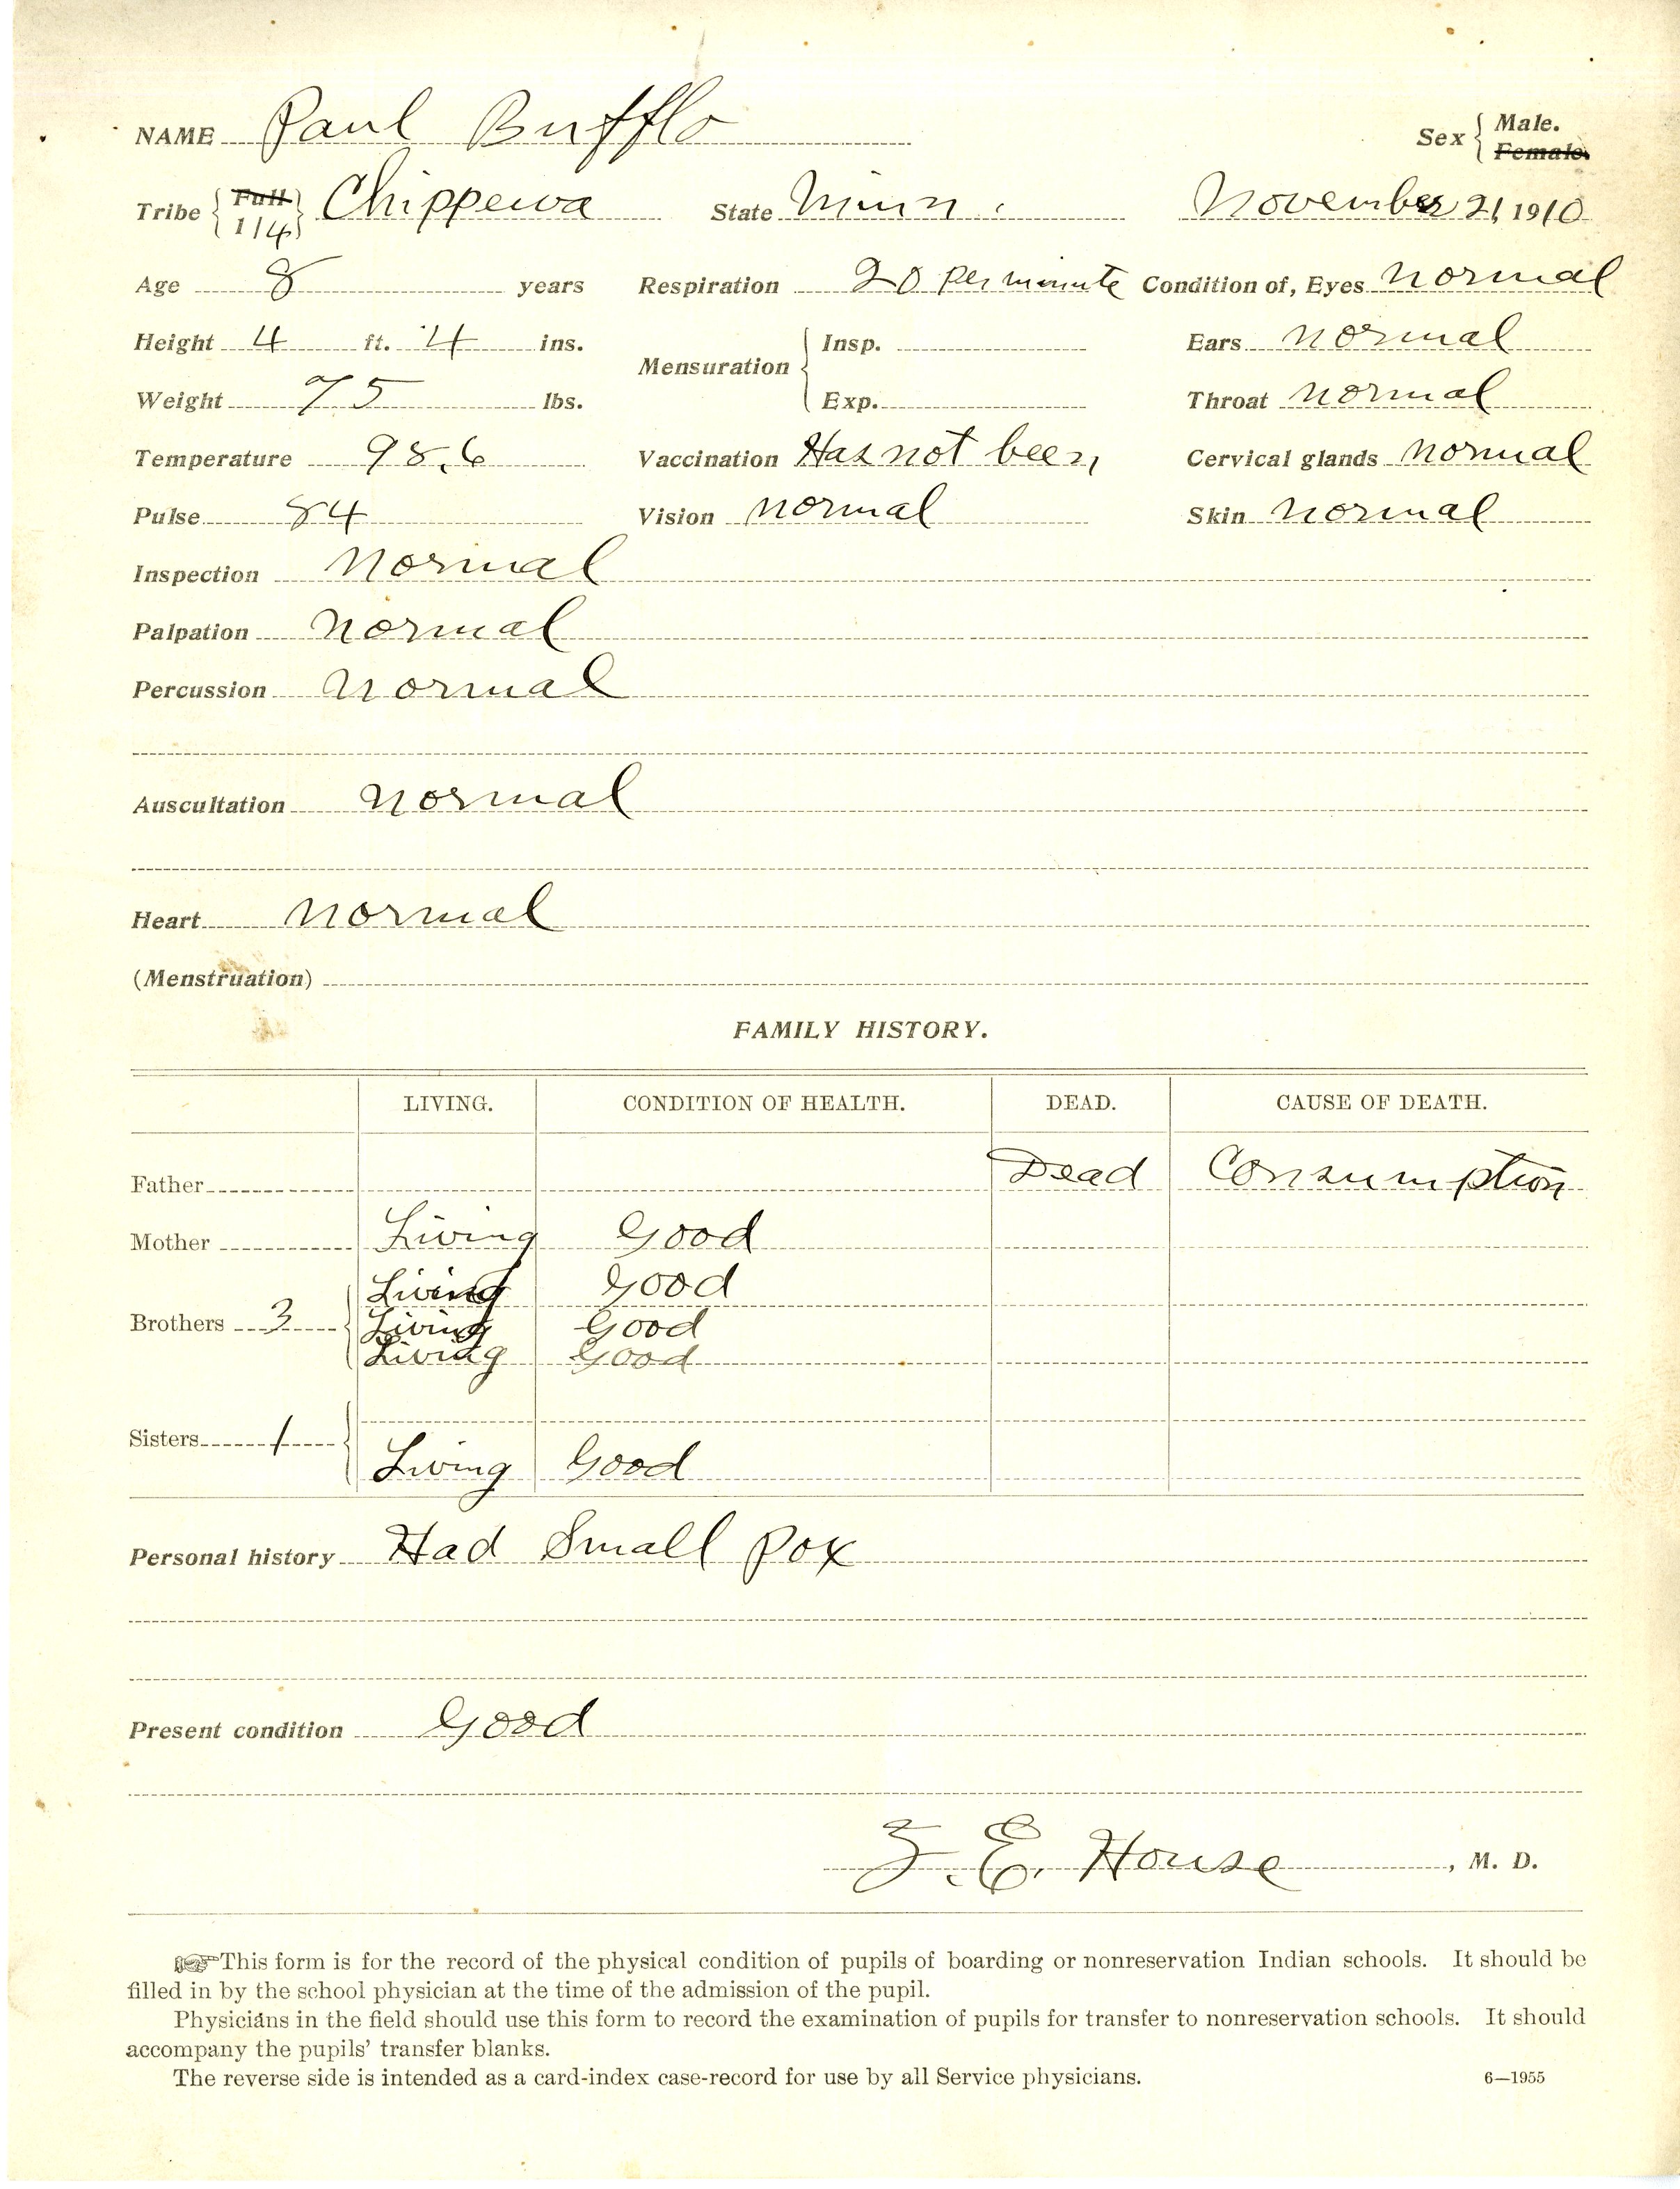 NAME Paul Bufflo Sex { Male. Female.
Tribe { Full 1/4 } Chippewa State Minn. November 21, 1910
Age 8 years Respiration 20 per minute Condition of, Eyes normal
Height 4 ft. 4 ins. Mensuration { Insp. Ears normal
Weight 75 lbs. Exp. Throat normal
Temperature 98.6 Vaccination Has not been Cervical glands normal
Pulse 84 Vision normal Skin normal
Inspection normal
Palpation normal
Percussion normal
Auscultation normal
Heart normal
(Menstruation)
FAMILY HISTORY.
LIVING. CONDITION OF HEALTH. DEAD. CAUSE OF DEATH.
Father Dead Consumption
Mother Living Good
Living Good
Brothers 3 Living Good
Living Good
Sisters 1
Living Good
Personal history Had Small pox
Present condition Good
Z. E. House, M. D.
☞This form is for the record of the physical condition of pupils of boarding or nonreservation Indian schools. It should be
filled in by the school physician at the time of the admission of the pupil.
Physicians in the field should use this form to record the examination of pupils for transfer to nonreservation schools. It should
accompany the pupils' transfer blanks.
The reverse side is intended as a card-index case-record for use by all Service physicians. 6—1955